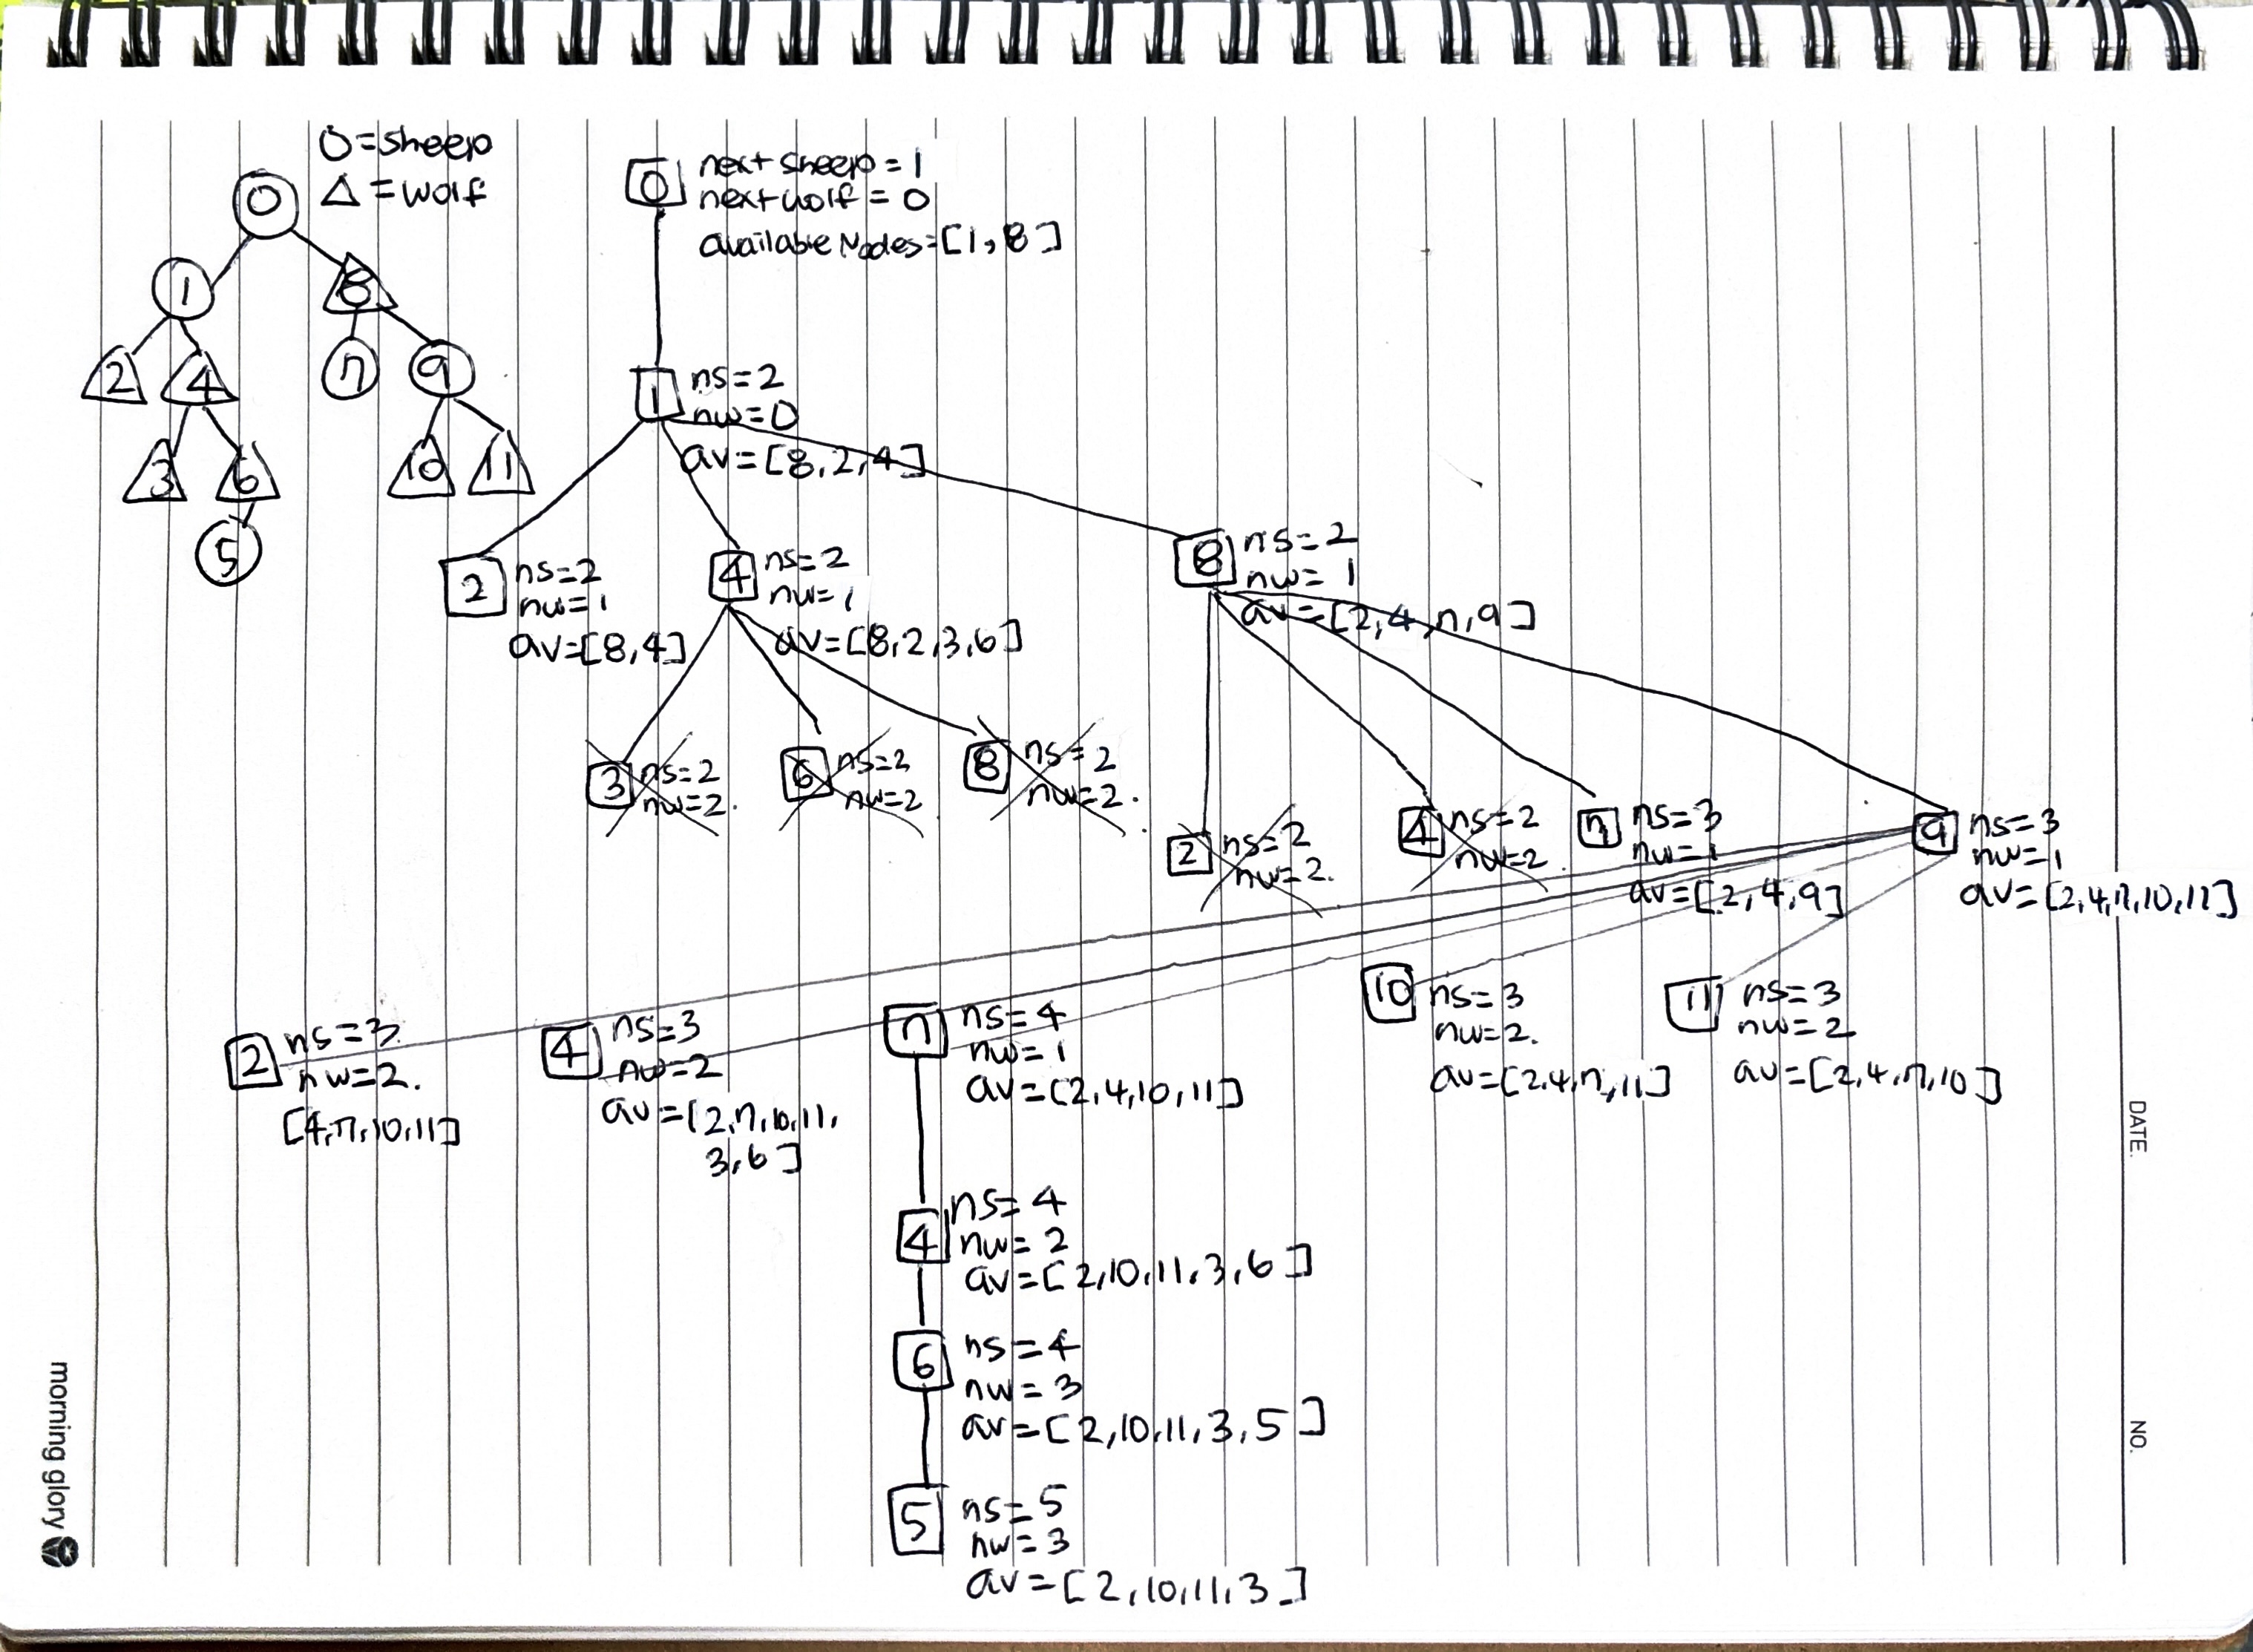 O=sheep
△=wolf
0
1
8
2
4
7
9
3
6
10
11
5
0
next sheep = 1
next wolf = 0
available Nodes=[1,8]
1
ns=2
nw=0
av=[8,2,4]
2
ns=2
nw=1
av=[8,4]
4
ns=2
nw=1
av=[8,2,3,6]
8
ns=2
nw=1
av=[2,4,7,9]
3
ns=2
nw=2.
6
ns=2
nw=2
8
ns=2
nw=2.
2
ns=2
nw=2.
4
ns=2
nw=2.
7
ns=3
nw=1
av=[2,4,9]
9
ns=3
nw=1
av=[2,4,7,10,11]
2
ns=3.
nw=2.
[4,7,10,11]
4
ns=3
nw=2
av=[2,7,10,11,
3,6]
7
ns=4
nw=1
av=[2,4,10,11]
10
ns=3
nw=2.
av=[2,4,7,11]
11
ns=3
nw=2
av=[2,4,7,10]
4
ns=4
nw=2
av=[2,10,11,3,6]
6
ns=4
nw=3
av=[2,10,11,3,5]
5
ns=5
nw=3
av=[2,10,11,3]
DATE.
NO.
morning glory